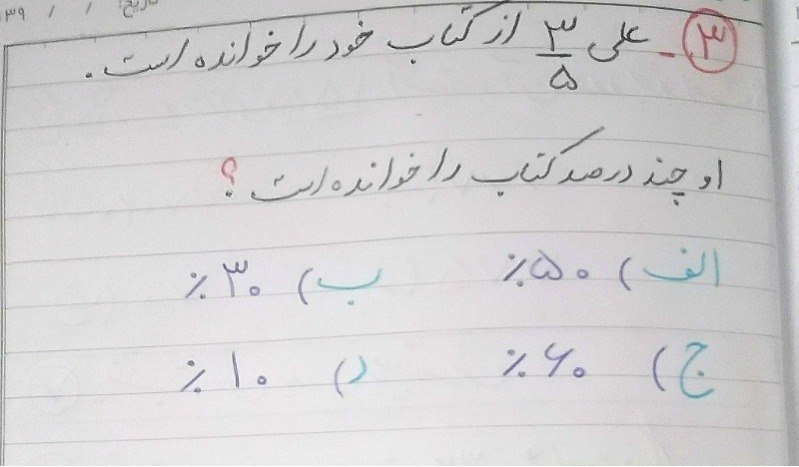 تاریخ: / / ۳۹
۳- علی ۳/۵ از کتاب خود را خوانده است.
او چند درصد کتاب را خوانده است؟
الف) ۵۰٪ ب) ۳۰٪
ج) ۶۰٪ د) ۱۰٪